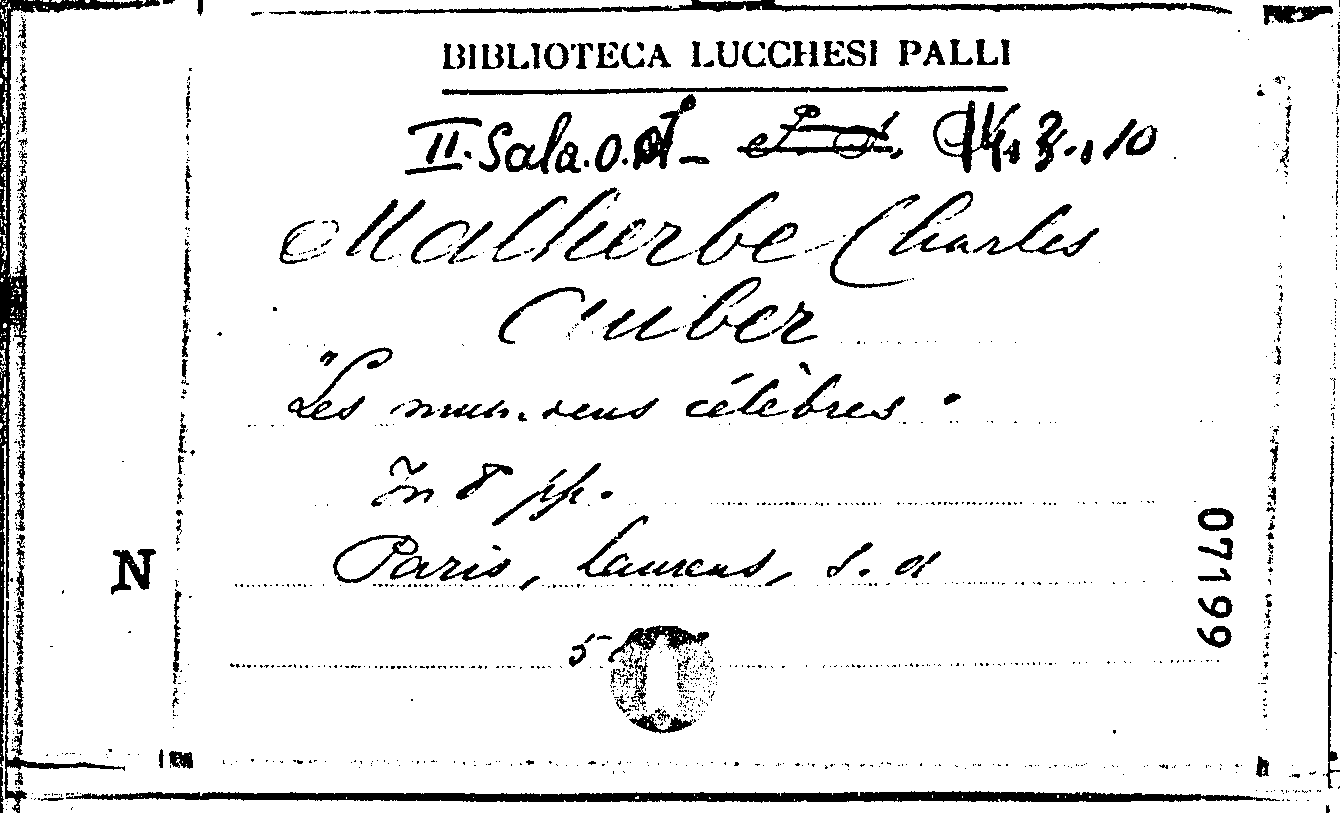 BIBLIOTECA LUCCHESI PALLI
II. Sala. O.
10
Malherbe Charles
Auber
"Les musiciens célèbres"
In 8 pp.
Paris, Laurens, s. d
N
07199
5